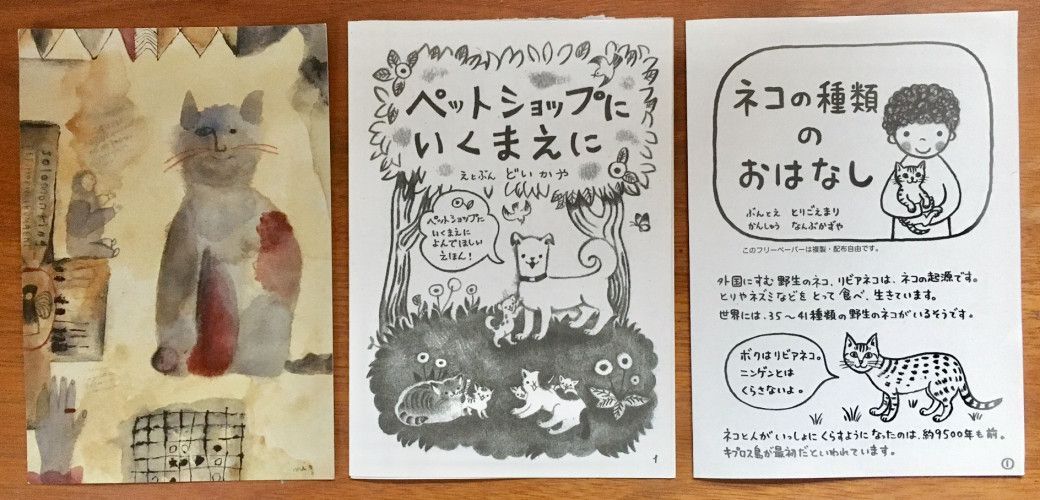 ペットショップに
いくまえに
えとぶん どいかや
ペットショップに
いくまえに
よんでほしい
えほん!
1
ネコの種類
の
おはなし
ぶんとえ とりごえまり
かんしゅう なんぶかずや
このフリーペーパーは複製・配布自由です。
外国にすむ野生のネコ、リビアネコは、ネコの起源です。
とりやネズミなどをとって食べ、生きています。
世界には、35〜41種類の野生のネコがいるそうです。
ボクはリビアネコ。
ニンゲンとは
くらさないよ。
ネコと人がいっしょにくらすようになったのは、約9500年も前。
キプロス島が最初だといわれています。
①